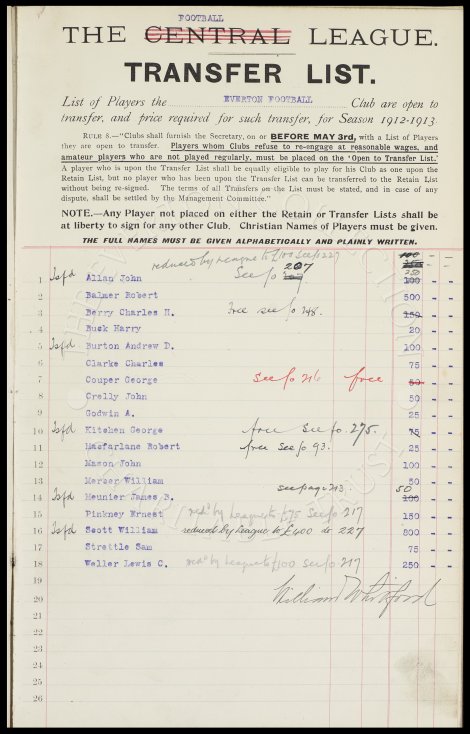 FOOTBALL
THE CENTRAL LEAGUE.
TRANSFER LIST.
List of Players the EVERTON FOOTBALL Club are open to
transfer, and price required for such transfer, for Season 1912-1913.
RULE 8.—"Clubs shall furnish the Secretary, on or BEFORE MAY 3rd, with a List of Players
they are open to transfer. Players whom Clubs refuse to re-engage at reasonable wages, and
amateur players who are not played regularly, must be placed on the 'Open to Transfer List.'
A player who is upon the Transfer List shall be equally eligible to play for his Club as one upon the
Retain List, but no player who has been upon the Transfer List can be transferred to the Retain List
without being re-signed. The terms of all Transfers on the List must be stated, and in case of any
dispute, shall be settled by the Management Committee."
NOTE.—Any Player not placed on either the Retain or Transfer Lists shall be
at liberty to sign for any other Club. Christian Names of Players must be given.
THE FULL NAMES MUST BE GIVEN ALPHABETICALLY AND PLAINLY WRITTEN.
reduced by League to £100 See fo 227 100
1 Isfd Allan John See fo 207 250 100 - -
2 Balmer Robert 500 - -
3 Berry Charles H. Free see fo 248. 150 - -
4 Buck Harry 20 - -
5 Isfd Burton Andrew D. 100 - -
6 Clarke Charles 75 - -
7 Couper George See fo 216 free 50 - -
8 Crelly John 50 - -
9 Godwin A. 25 - -
10 Isfd Kitchen George free See fo 275. 75 - -
11 Macfarlane Robert free see fo 93. 25 - -
12 Mason John 100 - -
13 Mercer William 50 - -
see page 213. 50
14 Isfd Meunier James B. 100 - -
15 Pinkney Ernest red'd by League to £75 See fo 217 150 - -
16 Isfd Scott William reduced by League to £400 fo 227 800 - -
17 Strettle Sam 75 - -
18 Weller Lewis C. red'd by League to £100 See fo 217 250 - -
19
20 William Whitford
21
22
23
24
25
26